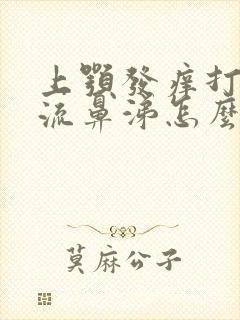 上顎發痒打
流鼻涕怎麼
莫麻公子